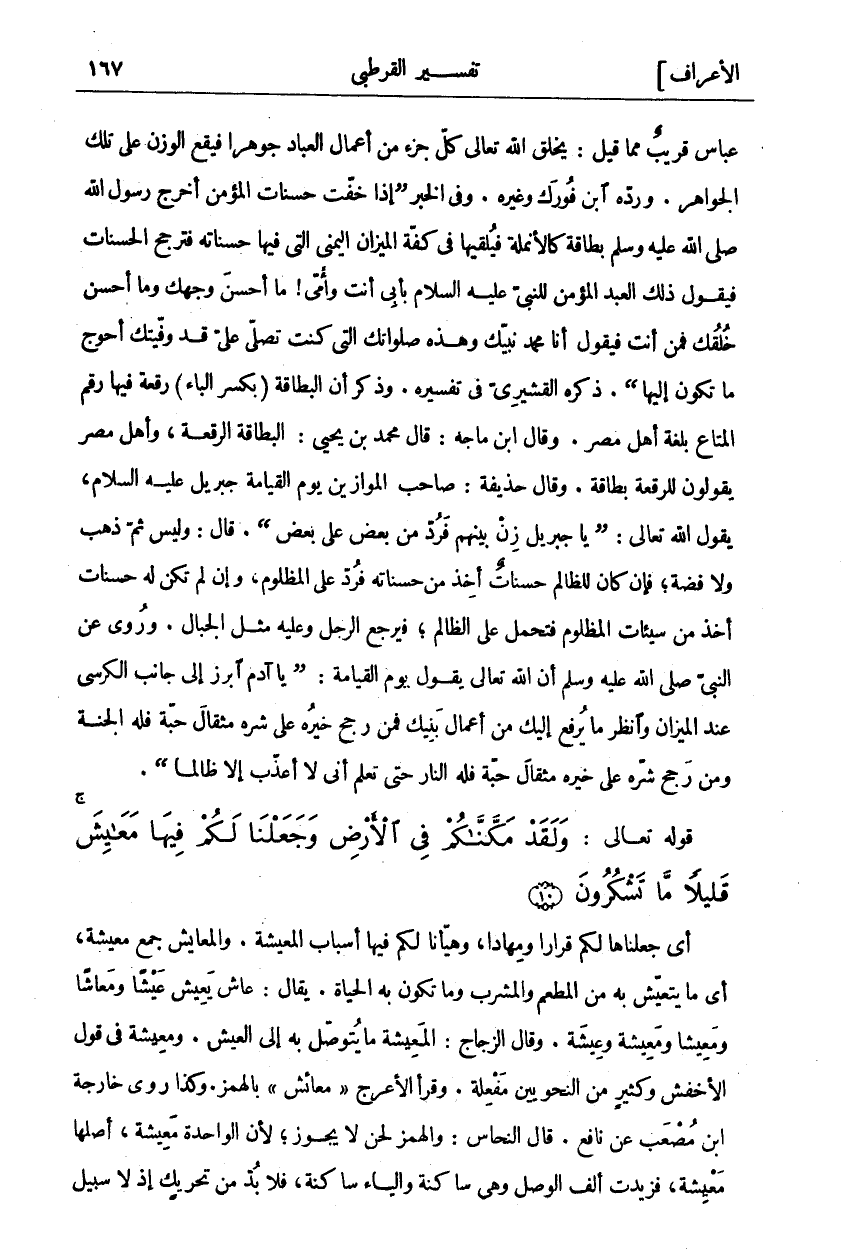 الأعراف] تفســـير القرطبى ١٦٧
عباس قريبٌ مما قيل : يخلق الله تعالى كلّ جزء من أعمال العباد جوهرا فيقع الوزن على تلك
الجواهر . وردّه آبن فُورَك وغيره . وفى الخبر ”إذا خفّت حسنات المؤمن أخرج رسول الله
صلى الله عليه وسلم بطاقة كالأنملة فيُلقيها فى كفّة الميزان اليمنى التى فيها حسناته فترجح الحسنات
فيقـول ذلك العبد المؤمن للنبىّ عليـه السلام بأبى أنت وأُمّى! ما أحسنَ وجهك وما أحسن
خُلُقك فمن أنت فيقول أنا محمد نبيّك وهـذه صلواتك التى كنت تصلّى علىّ قـد وفّيتك أحوج
ما تكون إليها“ . ذكره القشيرىّ فى تفسيره . وذكر أن البطاقة (بكسر الباء) رقعة فيها رقم
المتاع بلغة أهل مصر . وقال ابن ماجه : قال محمد بن يحيى : البطاقة الرقعـة ، وأهل مصر
يقولون للرقعة بطاقة . وقال حذيفة : صاحب الموازين يوم القيامة جبريل عليـه السلام،
يقول الله تعالى : ” يا جبريل زِنْ بينهم فَرُدّ من بعض على بعض “ . قال : وليس ثَمّ ذهب
ولا فضة؛ فإن كان للظالم حسناتٌ أخِذ من حسناته فرُدّ على المظلوم، وإن لم تكن له حسنات
أخذ من سيئات المظلوم فتحمل على الظالم ؛ فيرجع الرجل وعليه مثـل الجبال . ورُوى عن
النبىّ صلى الله عليه وسلم أن الله تعالى يقـول يوم القيامة : ” يا آدم آبرز إلى جانب الكرسى
عند الميزان وآنظر ما يُرفع إليك من أعمال بَنِيك فمن رجح خيرُه على شره مثقالَ حبّة فله الجنـة
ومن رَجح شرّه على خيره مثقالَ حبّة فله النار حتى تعلم أنى لا أعذّب إلا ظالمـا “ .
قوله تعـالى : وَلَقَدْ مَكَّنَّـٰكُمْ فِى ٱلْأَرْضِ وَجَعَلْنَا لَـكُمْ فِيهَـا مَعَـٰيِشَ ۚ
قَلِيلًا مَّا تَشْكُرُونَ ﴿١٠﴾
أى جعلناها لكم قرارا ومِهادا، وهيّأنا لكم فيها أسباب المعيشة . والمعايش جمع معيشة،
أى ما يتعيّش به من المطعم والمشرب وما تكون به الحياة . يقال : عاش يَعِيش عَيْشًا ومَعاشًا
ومَعِيشا ومَعِيشة وعِيشَة . وقال الزجاج : المَعِيشة ما يُتوصّل به إلى العيش . ومعِيشة فى قول
الأخفش وكثيرٍ من النحويين مَفْعِلة . وقرأ الأعرج « معائش » بالهمز.وكذا روى خارجة
ابن مُصْعَب عن نافع . قال النحاس : والهمز لحن لا يجـوز ؛ لأن الواحدة مَعِيشة ، أصلها
مَعْيِشة ، فزيدت ألف الوصل وهى ساكنة واليـاء ساكنة، فلا بُدّ من تحريكٍ إذ لا سبيل